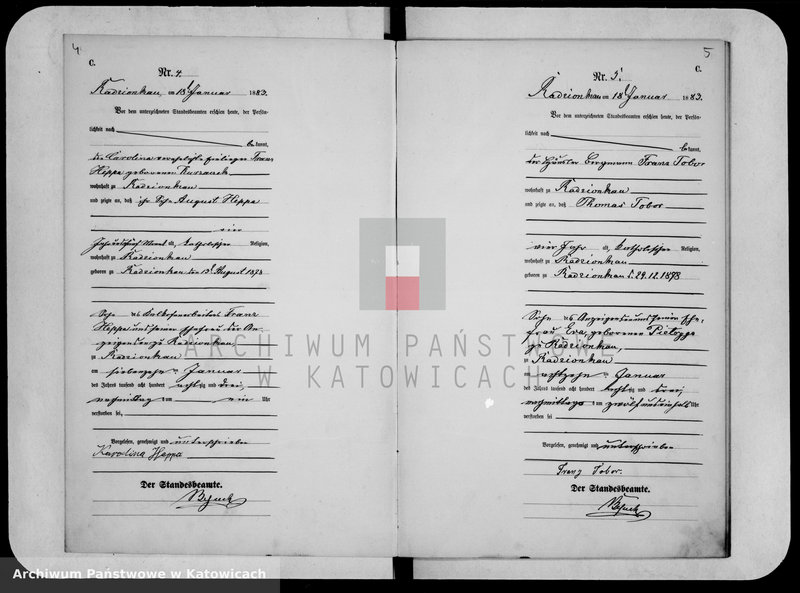 4.
C.
Nr. 4.
Radzionkau am 18 Januar 1883.
Vor dem unterzeichneten Standesbeamten erschien heute, der Persön-
lichkeit nach
bekannt,
die Carolina verehelichte Franz
Heppa geborenen
wohnhaft zu Radzionkau
und zeigte an, daß ihr Sohn August Heppa
vier
Jahr fünf Monat alt, katholischer Religion,
wohnhaft zu Radzionkau
geboren zu Radzionkau den 13 August 1878
Sohn des Franz
Heppa und seiner Ehefrau der An-
zeigenden zu Radzionkau,
zu Radzionkau
am siebzehn ten Januar
des Jahres tausend acht hundert achtzig und drei,
nachmittag um ein Uhr
verstorben sei,
Vorgelesen, genehmigt und unterschrieben
Karolina Heppa
Der Standesbeamte.
5
C.
Nr. 5.
Radzionkau am 18 Januar 1883.
Vor dem unterzeichneten Standesbeamten erschien heute, der Persön-
lichkeit nach
bekannt,
der Häusler Bergmann Franz Tobor
wohnhaft zu Radzionkau
und zeigte an, daß Thomas Tobor
vier Jahr alt, katholischer Religion,
wohnhaft zu Radzionkau
geboren zu Radzionkau d. 29.12.1878
Sohn des Anzeigenden und seiner Ehe-
frau Eva, geborenen Pietryga
zu Radzionkau,
zu Radzionkau
am achtzehn ten Januar
des Jahres tausend acht hundert achtzig und drei,
nachmittags um zwölf und einhalb Uhr
verstorben sei
Vorgelesen, genehmigt und unterschrieben
Franz Tobor.
Der Standesbeamte.
ARCHIWUM PAŃSTWOWE
W KATOWICACH
Archiwum Państwowe w Katowicach